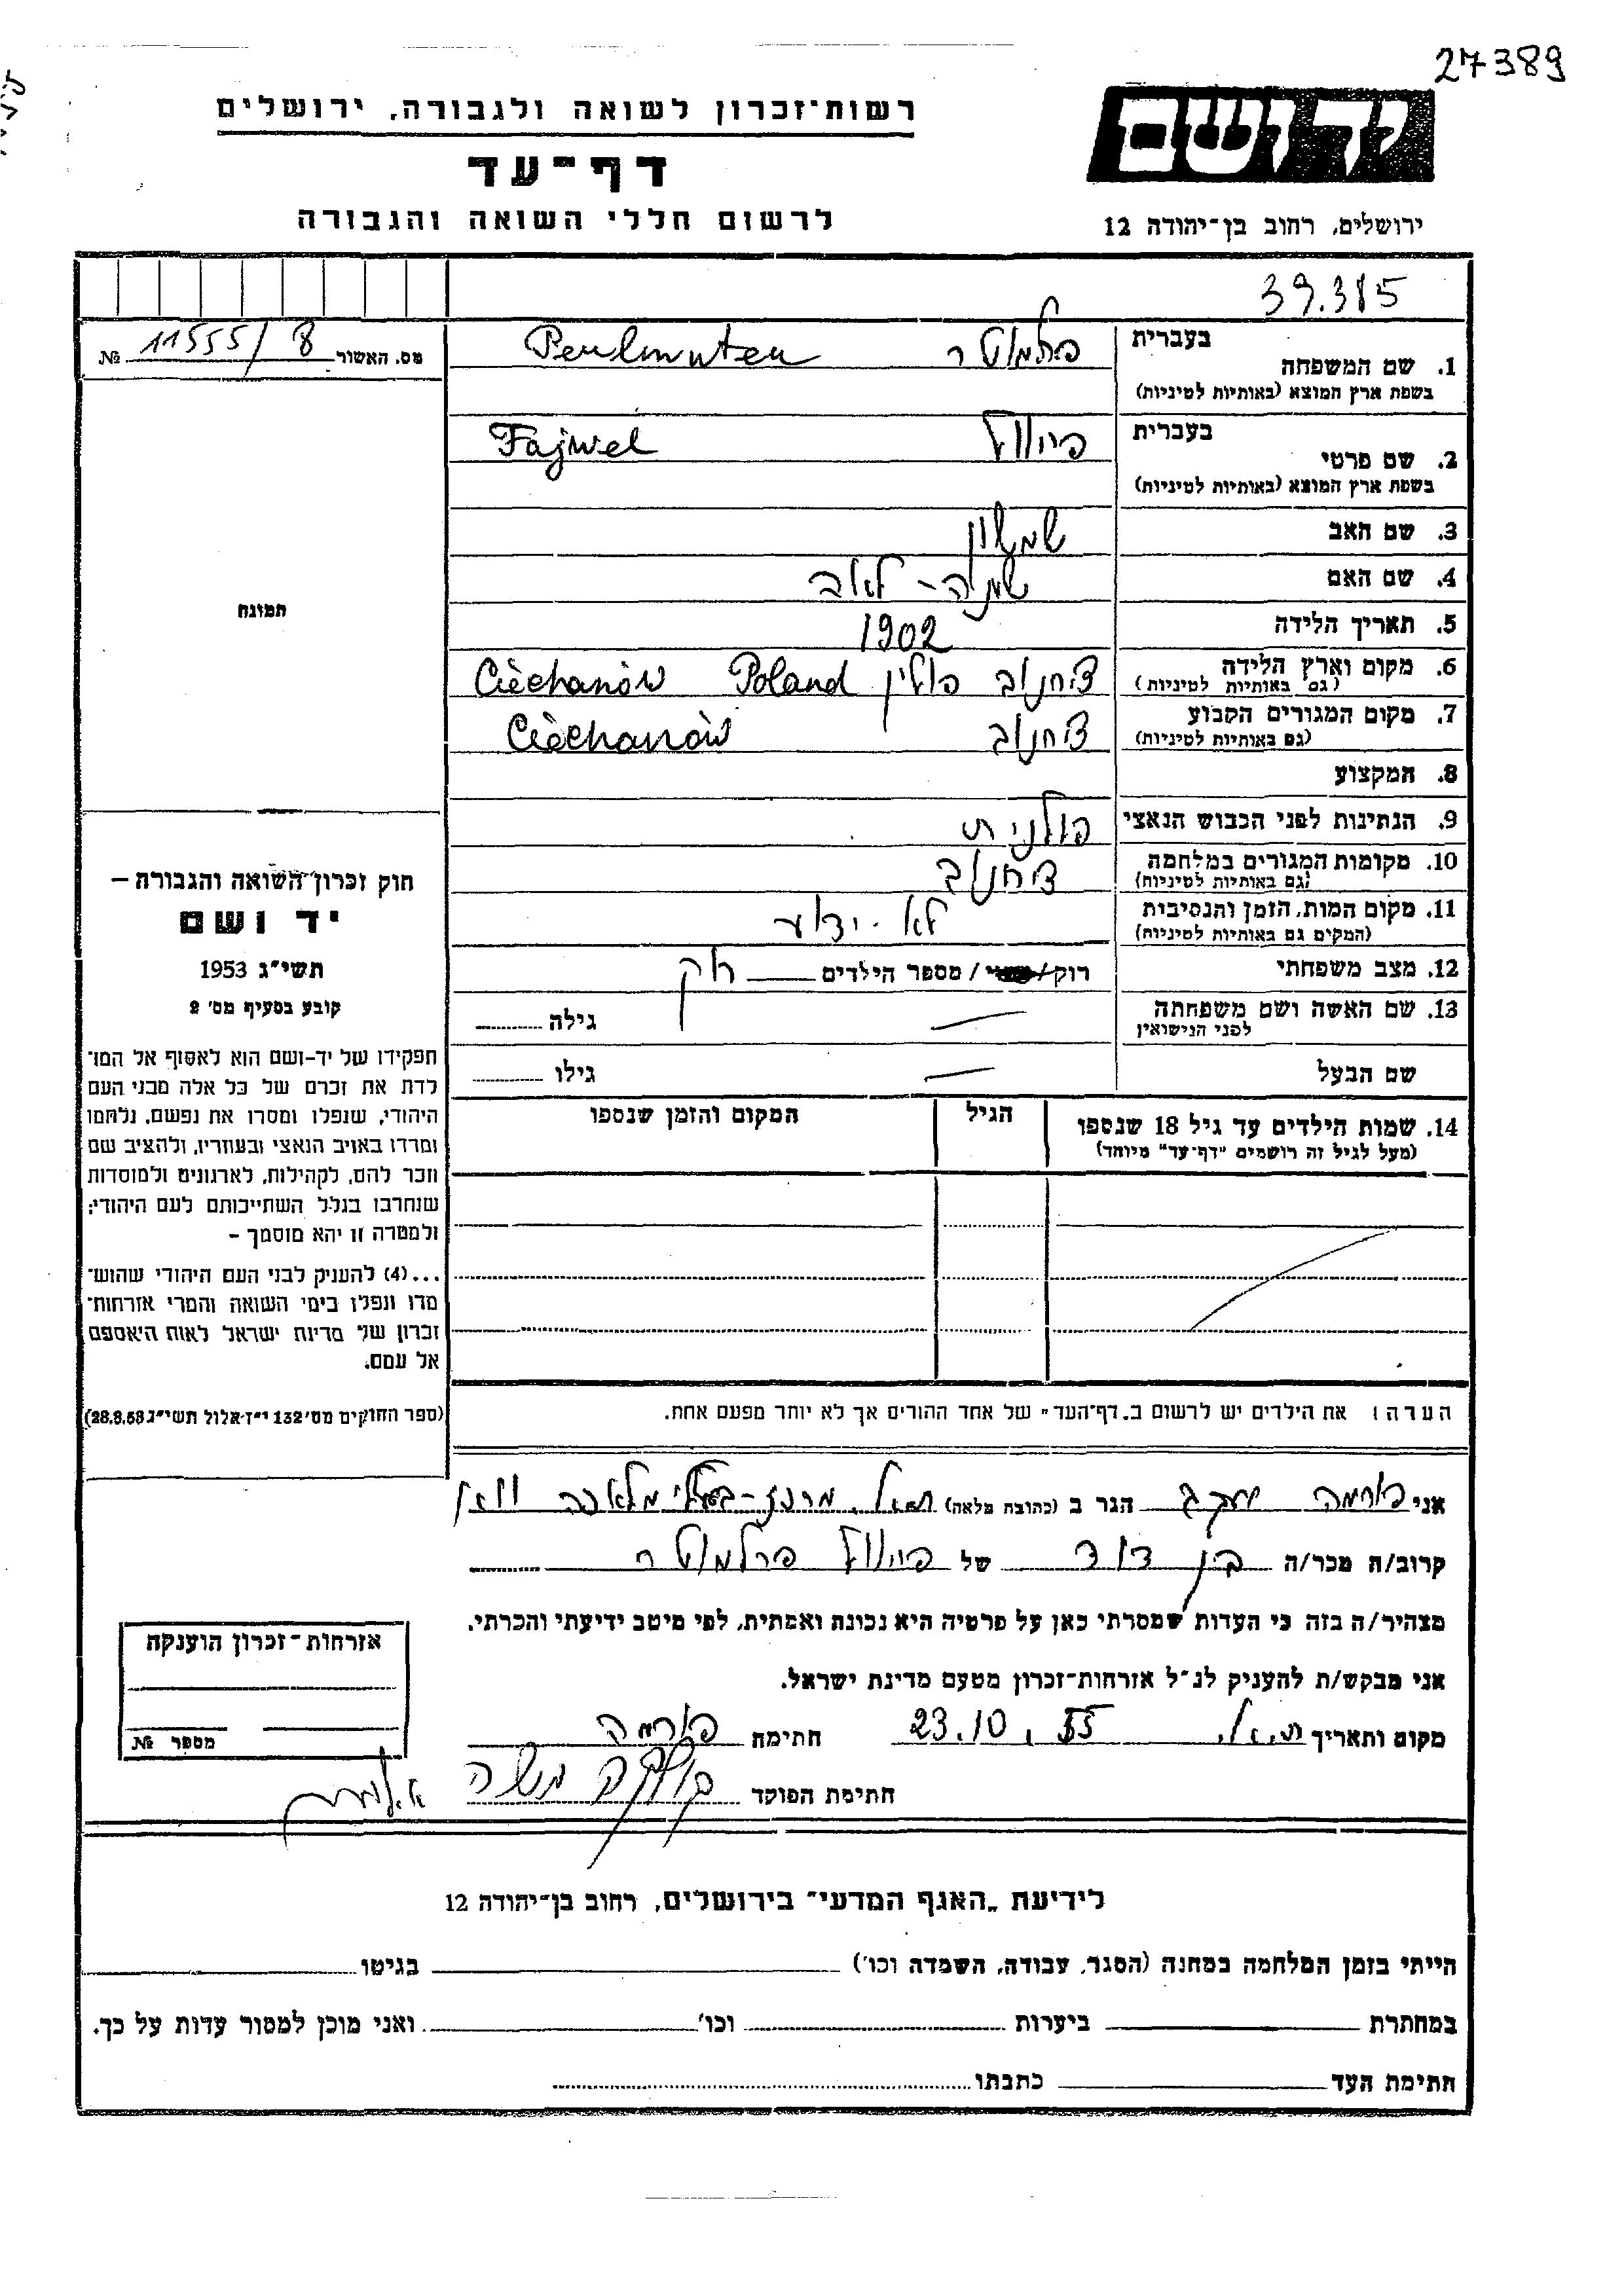 27389
יד ושם
רשות־זכרון לשואה ולגבורה, ירושלים
דף־עד
לרשום חללי השואה והגבורה
ירושלים, רחוב בן־יהודה 12
39.315
מס. האשור 11555/8 №
בעברית
1. שם המשפחה פרלמוטר Perlmuter
בשפת ארץ המוצא (באותיות לטיניות)
בעברית
2. שם פרטי פייוול Fajwel
בשפת ארץ המוצא (באותיות לטיניות)
3. שם האב שמשון
4. שם האם
5. תאריך הלידה 1902
6. מקום וארץ הלידה צ'חנוב פולין Poland Ciechanów
(גם באותיות לטיניות)
7. מקום המגורים הקבוע צ'חנוב Ciechanów
(גם באותיות לטיניות)
8. המקצוע
9. הנתינות לפני הכבוש הנאצי פולנית
10. מקומות המגורים במלחמה צ'חנוב
(גם באותיות לטיניות)
11. מקום המות, הזמן והנסיבות לא ידוע
(המקום גם באותיות לטיניות)
12. מצב משפחתי רוק/ / מספר הילדים רוק
13. שם האשה ושם משפחתה — גילה
לפני הנישואין
שם הבעל — גילו
14. שמות הילדים עד גיל 18 שנספו הגיל המקום והזמן שנספו
(מעל לגיל זה רושמים "דף־עד" מיוחד)
הערה: את הילדים יש לרשום ב„דף־העד" של אחד ההורים אך לא יותר מפעם אחת.
תמונה
חוק זכרון השואה והגבורה —
יד ושם
תשי"ג 1953
קובע בסעיף מס' 2
תפקידו של יד-ושם הוא לאסוף אל המו־
לדת את זכרם של כל אלה מבני העם
היהודי, שנפלו ומסרו את נפשם, נלחמו
ומרדו באויב הנאצי ובעוזריו, ולהציב שם
וזכר להם, לקהילות, לארגונים ולמוסדות
שנחרבו בגלל השתייכותם לעם היהודי;
ולמטרה זו יהא מוסמך —
...(4) להעניק לבני העם היהודי שהוש־
מדו ונפלו בימי השואה והמרי אזרחות־
זכרון של מדינת ישראל לאות היאספם
אל עמם.
(ספר החוקים מס' 132 י"ז אלול תשי"ג 28.8.53)
אני יעקב הגר ב (כתובת מלאה) ת.א.
קרוב/ה מכר/ה בן דוד של פייוול פרלמוטר
מצהיר/ה בזה כי העדות שמסרתי כאן על פרטיה היא נכונה ואמתית, לפי מיטב ידיעתי והכרתי.
אני מבקש/ת להעניק לנ"ל אזרחות־זכרון מטעם מדינת ישראל.
מקום ותאריך ת.א. 23.10.55 חתימה
חתימת הפוקד משה
אזרחות־זכרון הוענקה
מספר №
לידיעת „האגף המדעי" בירושלים, רחוב בן־יהודה 12
הייתי בזמן המלחמה במחנה (הסגר, עבודה, השמדה וכו') בגיטו
במחתרת ביערות וכו' ואני מוכן למסור עדות על כך.
חתימת העד כתבתו